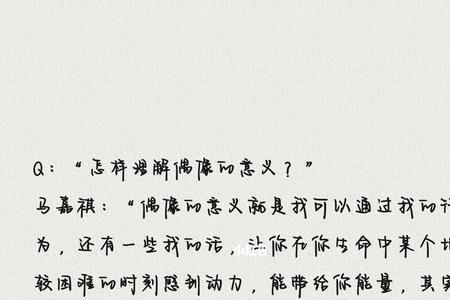 Q：“怎样理解偶像的意义？”
马嘉祺：“偶像的意义就是我可以通过我的行
为，还有一些我的话，让你在你生命中某个
较困难的时刻感到动力，能带给你能量，其实